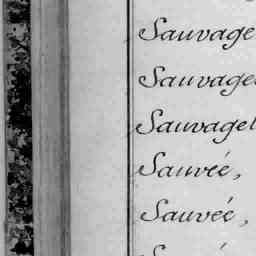 Sauvage
Sauvagel
Sauvagel
Sauvée,
Sauvée,